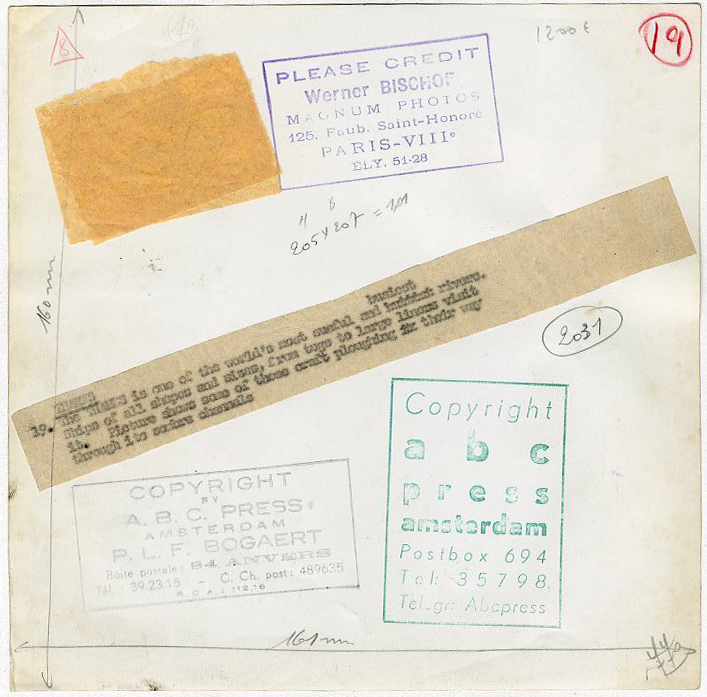 8
19
1200 €
19
PLEASE CREDIT
Werner BISCHOF
MAGNUM PHOTOS
125, Faub. Saint-Honoré
PARIS-VIIIe
ELY. 51-28
H B
205 x 207 = 1,01
160 mm
2031
busiest
THAMES
19. The THAMES is one of the world's most useful and rivers.
Ships of all shapes and sizes, from tugs to large liners visit
it. Picture shows some of these craft ploughing in their way
through its sombre channels
COPYRIGHT
BY
A. B. C. PRESS
AMSTERDAM
P. L. F. BOGAERT
Boite postale: 84 ANVERS
Tél.: 39.23.15 - C. Ch. post: 489635
Copyright
abc
press
amsterdam
Postbox 694
Tel: 35798
Telegr: Abcpress
161 mm